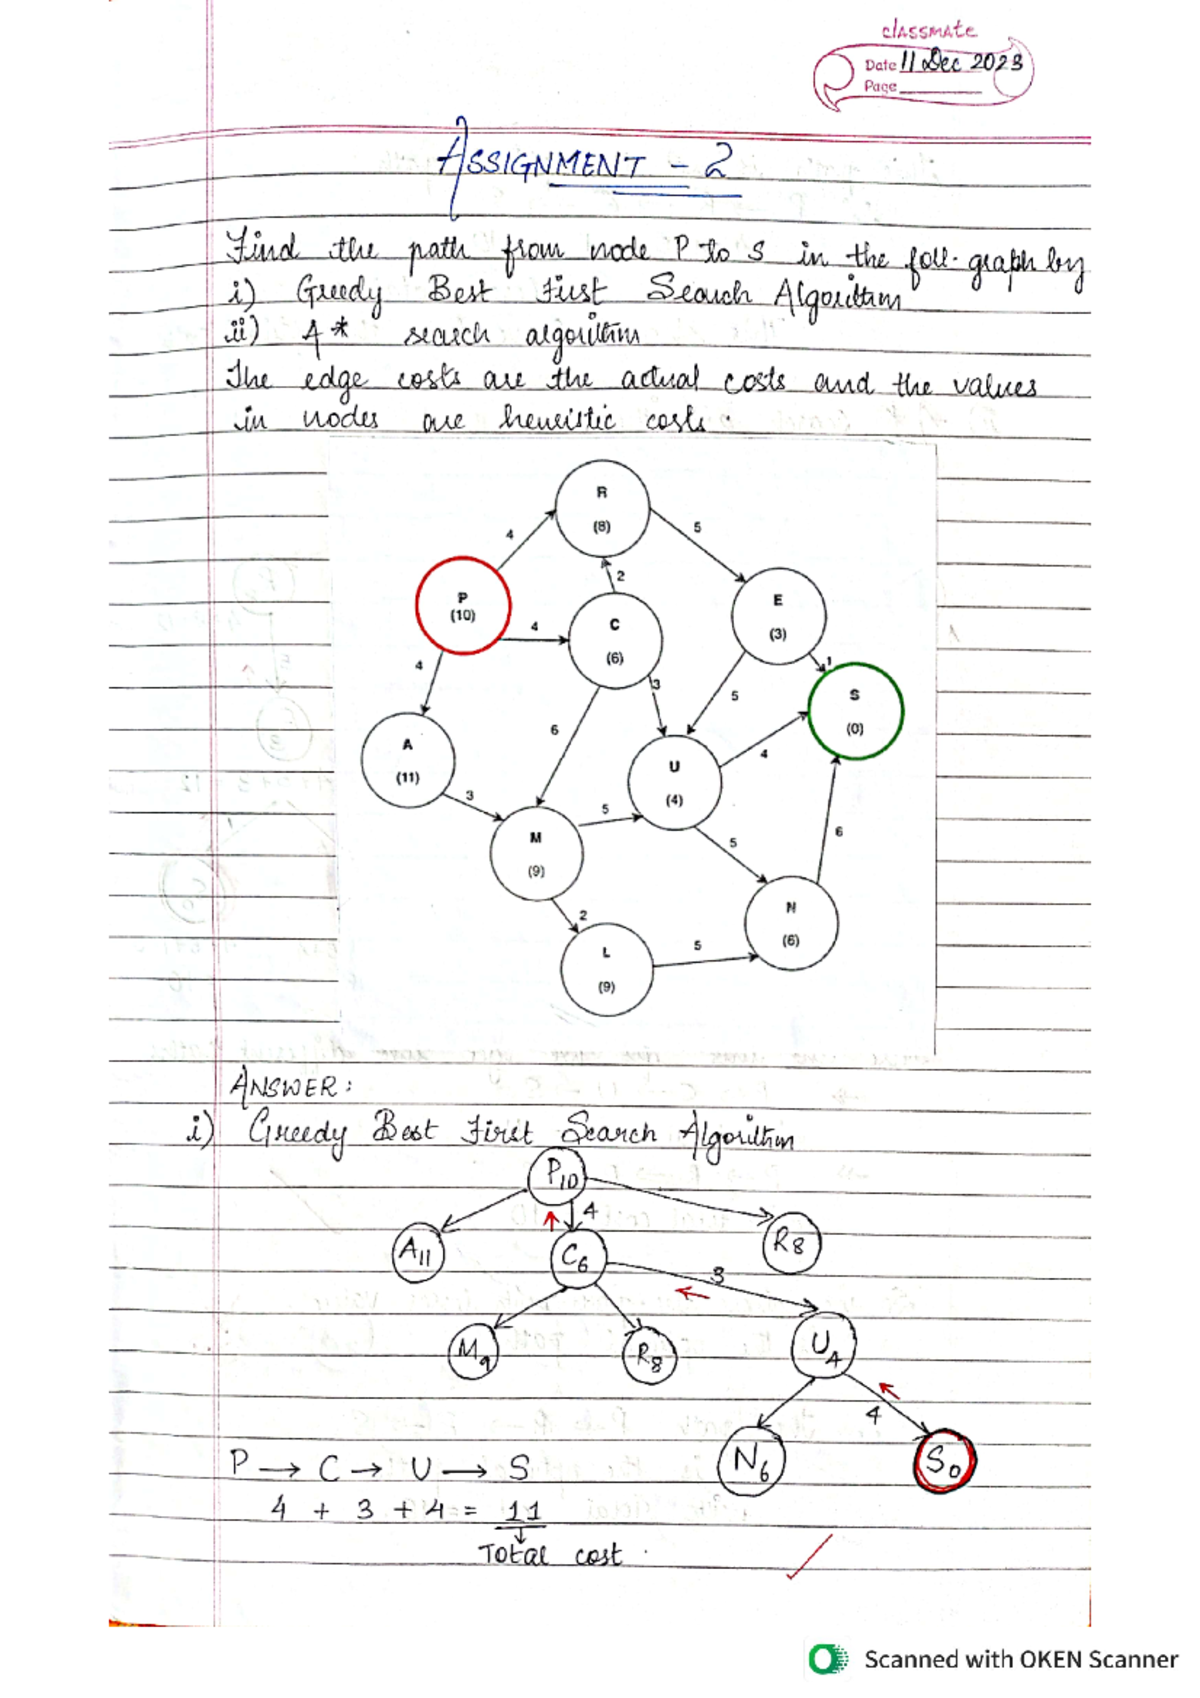 classmate
Date 11 Dec 2023
Page
ASSIGNMENT - 2
Find the path from node P to S in the foll. graph by
i) Greedy Best First Search Algorithm
ii) A* search algorithm
The edge costs are the actual costs and the values
in nodes are heuristic costs.
R
(8)
4
5
P
(10)
2
E
(3)
4
C
(6)
4
1
3
S
(0)
5
A
(11)
6
U
(4)
4
3
5
M
(9)
5
6
2
N
(6)
L
(9)
5
ANSWER:
i) Greedy Best First Search Algorithm
P10
4
A11
C6
R8
3
M9
R8
U4
4
N6
S0
P → C → U → S
4 + 3 + 4 = 11
Total cost.
Scanned with OKEN Scanner